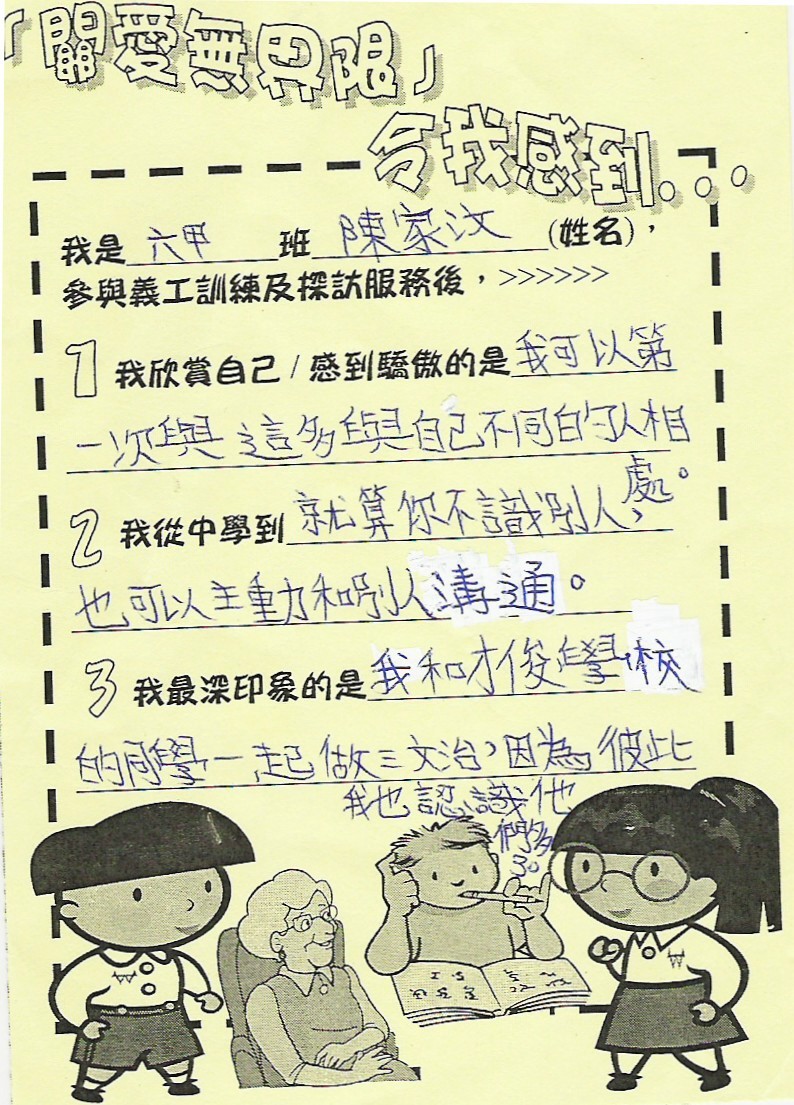 「關愛無界限」
令我感到...
我是 六甲 班 陳家汶 (姓名),
參與義工訓練及探訪服務後, >>>>>>
1 我欣賞自己/感到驕傲的是 我可以第
一次與這多與自己不同的人相
處。
2 我從中學到 就算你不識別人,
也可以主動和別人溝通。
3 我最深印象的是 我和才俊學校
的同學一起做三文治,因為彼此
我也認識他
們多
了。